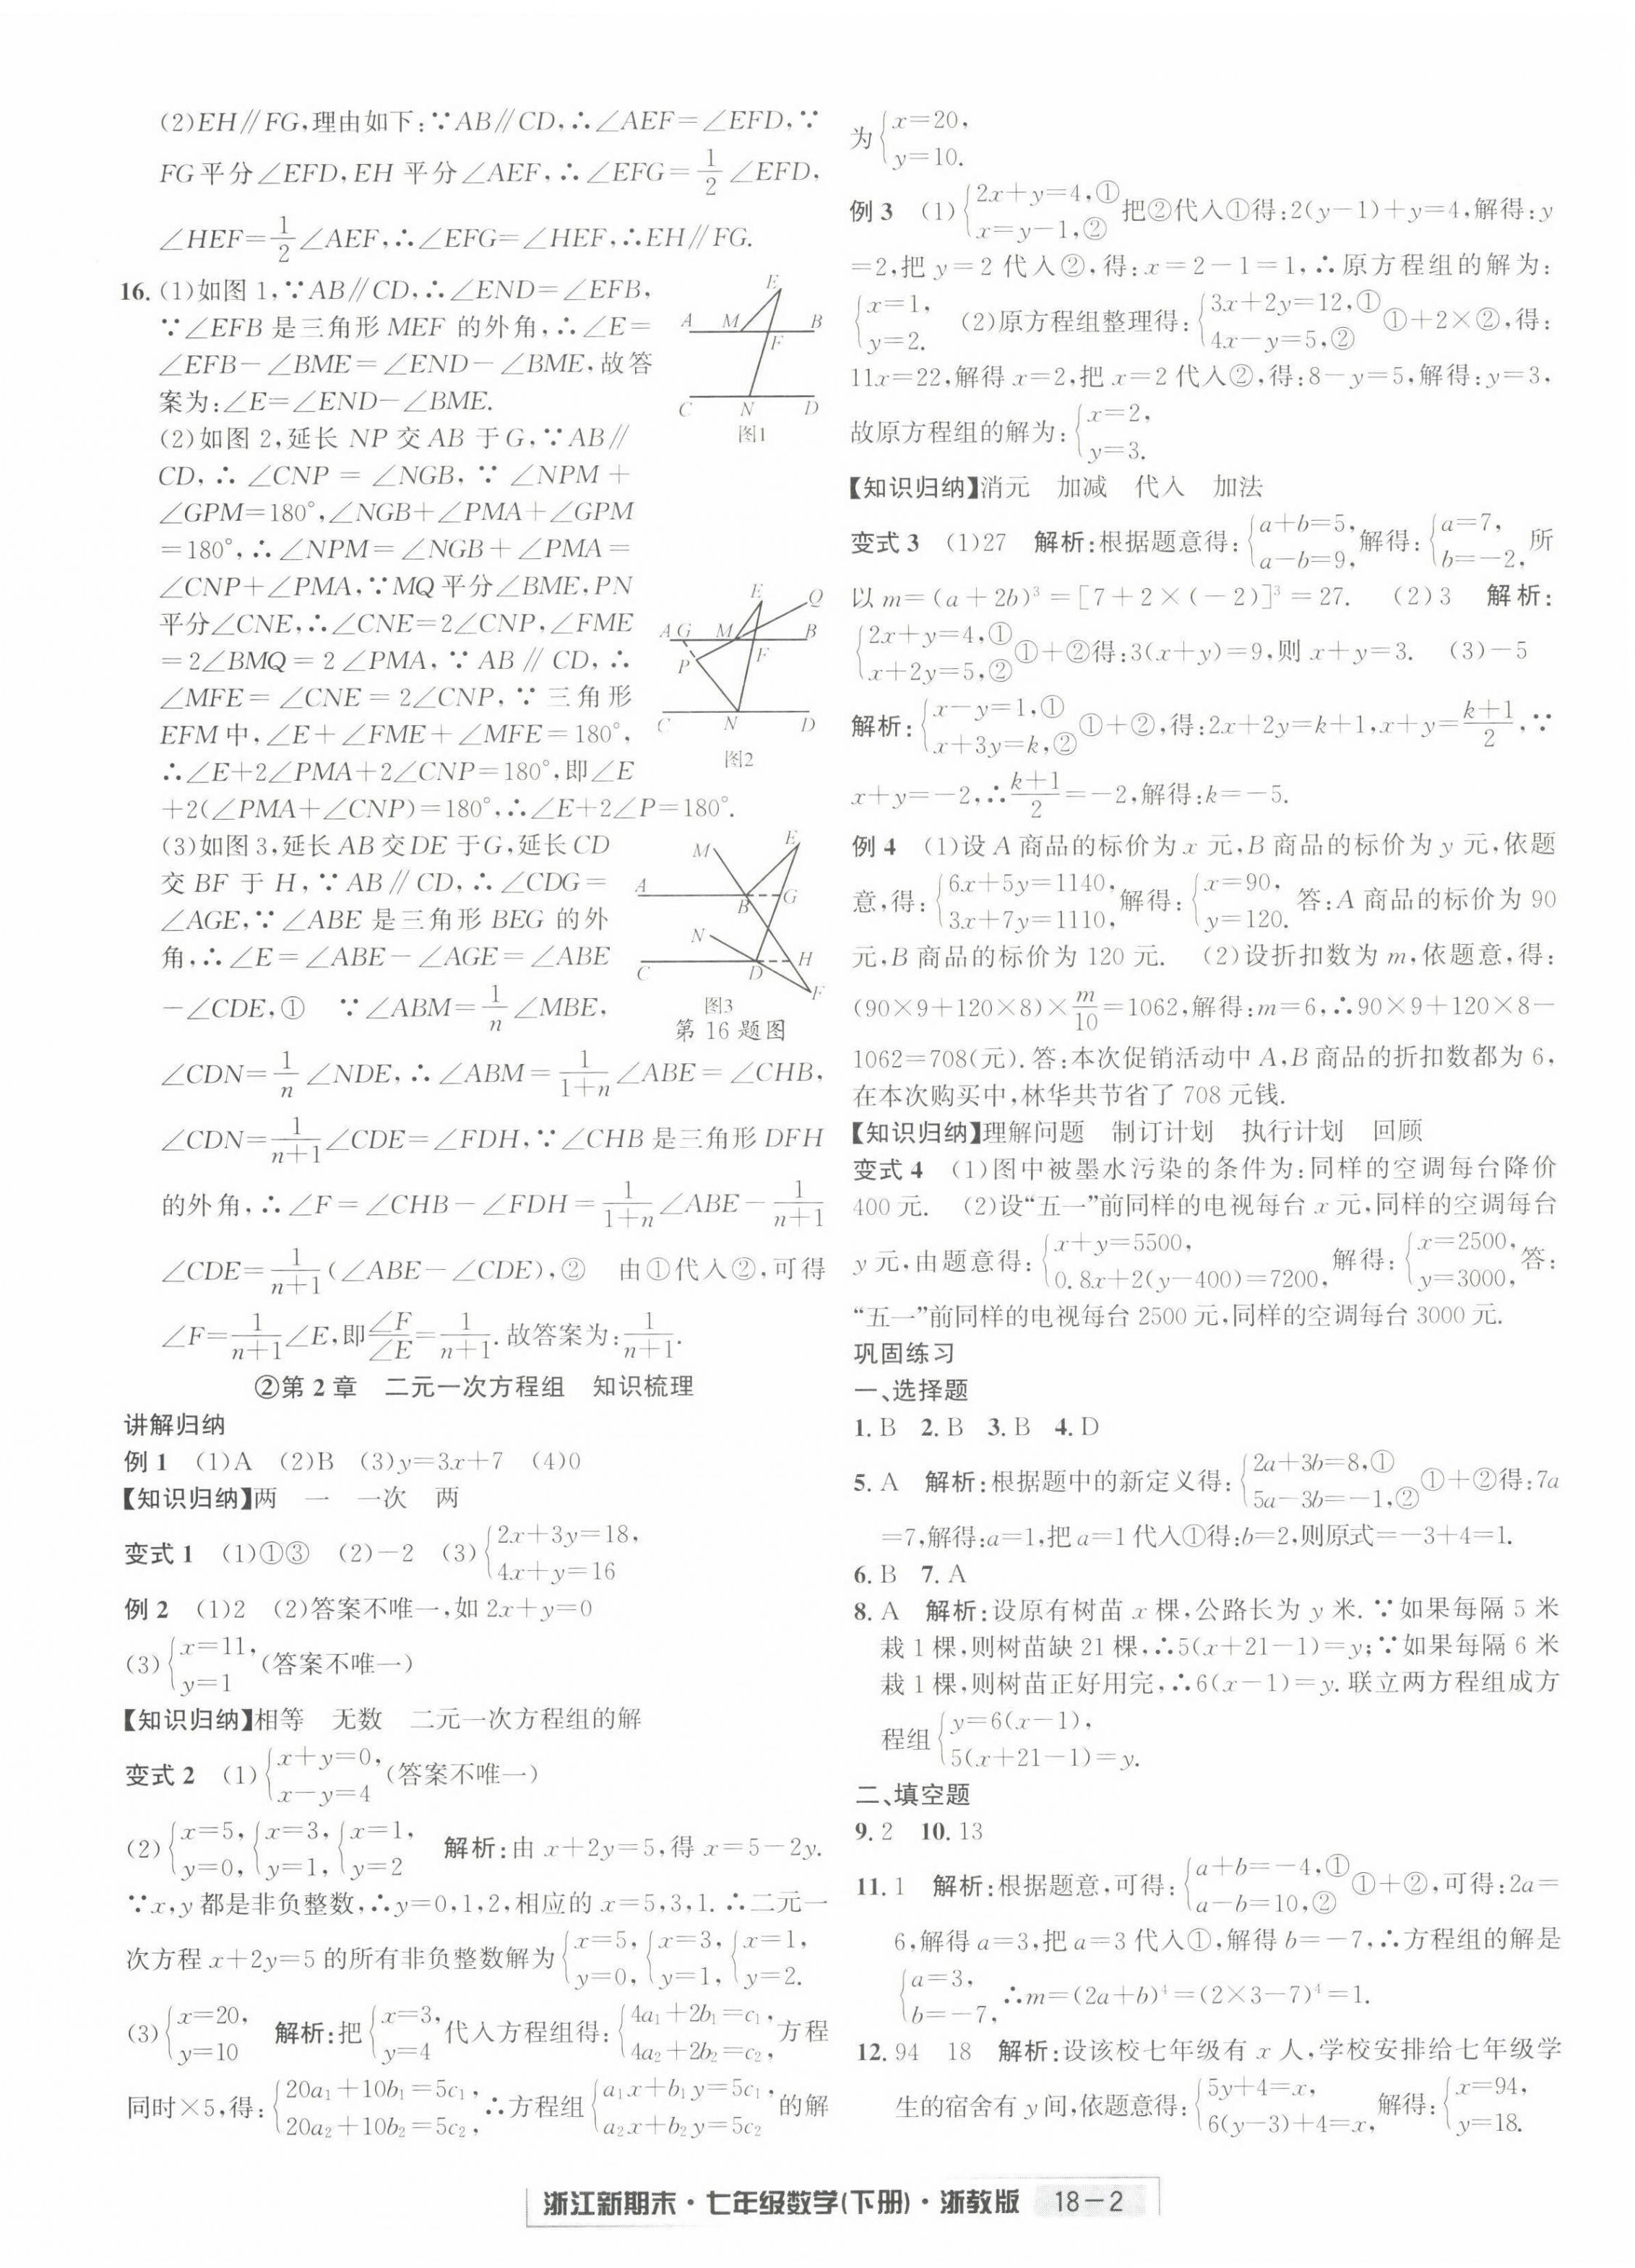 (2)EH∥FG,理由如下:∵AB∥CD,∴∠AEF=∠EFD,∵
FG平分∠EFD,EH 平分∠AEF,∴∠EFG=1/2∠EFD,
∠HEF=1/2∠AEF,∴∠EFG=∠HEF,∴EH∥FG.
16.(1)如图1,∵AB∥CD,∴∠END=∠EFB,
∵∠EFB 是三角形 MEF 的外角,∴∠E=
∠EFB-∠BME=∠END-∠BME,故答
案为:∠E=∠END-∠BME.
E
A M B
F
C N D
图1
(2)如图 2,延长 NP 交 AB 于G,∵AB∥
CD,∴∠CNP=∠NGB,∵∠NPM+
∠GPM=180°,∠NGB+∠PMA+∠GPM
=180°,∴∠NPM=∠NGB+∠PMA=
∠CNP+∠PMA,∵MQ平分∠BME,PN
平分∠CNE,∴∠CNE=2∠CNP,∠FME
=2∠BMQ=2∠PMA,∵AB∥CD,∴
∠MFE=∠CNE=2∠CNP,∵三角形
EFM中,∠E+∠FME+∠MFE=180°,
∴∠E+2∠PMA+2∠CNP=180°,即∠E
+2(∠PMA+∠CNP)=180°,∴∠E+2∠P=180°.
E Q
A G M B
P F
C N D
图2
(3)如图3,延长AB交DE于G,延长CD
交 BF 于 H,∵AB∥CD,∴∠CDG=
∠AGE,∵∠ABE 是三角形 BEG 的外
角,∴∠E=∠ABE-∠AGE=∠ABE
-∠CDE,① ∵∠ABM=1/n∠MBE,
M E
A B G
N
C D H
F
图3
第 16 题图
∠CDN=1/n∠NDE,∴∠ABM=1/(1+n)∠ABE=∠CHB,
∠CDN=1/(n+1)∠CDE=∠FDH,∵∠CHB是三角形DFH
的外角,∴∠F=∠CHB-∠FDH=1/(1+n)∠ABE-1/(n+1)
∠CDE=1/(n+1)(∠ABE-∠CDE),② 由①代入②,可得
∠F=1/(n+1)∠E,即∠F/∠E=1/(n+1).故答案为:1/(n+1).
②第 2 章 二元一次方程组 知识梳理
讲解归纳
例 1 (1)A (2)B (3)y=3x+7 (4)0
【知识归纳】两 一 一次 两
变式 1 (1)①③ (2)-2 (3){2x+3y=18,
4x+y=16
例 2 (1)2 (2)答案不唯一,如 2x+y=0
(3){x=11,
y=1 (答案不唯一)
【知识归纳】相等 无数 二元一次方程组的解
变式 2 (1){x+y=0,
x-y=4 (答案不唯一)
(2){x=5, {x=3, {x=1,
y=0, y=1, y=2 解析:由 x+2y=5,得 x=5-2y.
∵x,y都是非负整数,∴y=0,1,2,相应的 x=5,3,1.∴二元一
次方程 x+2y=5 的所有非负整数解为{x=5, {x=3, {x=1,
y=0, y=1, y=2.
(3){x=20,
y=10 解析:把{x=3,
y=4 代入方程组得:{4a₁+2b₁=c₁,
4a₂+2b₂=c₂, 方程
同时×5,得:{20a₁+10b₁=5c₁,
20a₂+10b₂=5c₂, ∴方程组{a₁x+b₁y=5c₁,
a₂x+b₂y=5c₂ 的解
为{x=20,
y=10.
例 3 (1){2x+y=4,①
x=y-1,② 把②代入①得:2(y-1)+y=4,解得:y
=2,把 y=2 代入②,得:x=2-1=1,∴原方程组的解为:
{x=1,
y=2. (2)原方程组整理得:{3x+2y=12,①
4x-y=5,② ①+2×②,得:
11x=22,解得 x=2,把 x=2 代入②,得:8-y=5,解得:y=3,
故原方程组的解为:{x=2,
y=3.
【知识归纳】消元 加减 代入 加法
变式 3 (1)27 解析:根据题意得:{a+b=5,
a-b=9, 解得:{a=7,
b=-2, 所
以 m=(a+2b)³=[7+2×(-2)]³=27. (2)3 解析:
{2x+y=4,①
x+2y=5,② ①+②得:3(x+y)=9,则 x+y=3. (3)-5
解析:{x-y=1,①
x+3y=k,② ①+②,得:2x+2y=k+1,x+y=(k+1)/2,∵
x+y=-2,∴(k+1)/2=-2,解得:k=-5.
例 4 (1)设 A 商品的标价为 x 元,B 商品的标价为 y 元,依题
意,得:{6x+5y=1140,
3x+7y=1110, 解得:{x=90,
y=120. 答:A 商品的标价为 90
元,B 商品的标价为 120 元. (2)设折扣数为 m,依题意,得:
(90×9+120×8)×m/10=1062,解得:m=6,∴90×9+120×8-
1062=708(元).答:本次促销活动中A,B商品的折扣数都为 6,
在本次购买中,林华共节省了 708 元钱.
【知识归纳】理解问题 制订计划 执行计划 回顾
变式 4 (1)图中被墨水污染的条件为:同样的空调每台降价
400 元. (2)设“五一”前同样的电视每台 x 元,同样的空调每台
y 元,由题意得:{x+y=5500,
0.8x+2(y-400)=7200, 解得:{x=2500,
y=3000, 答:
“五一”前同样的电视每台 2500 元,同样的空调每台 3000 元.
巩固练习
一、选择题
1. B 2. B 3. B 4. D
5. A 解析:根据题中的新定义得:{2a+3b=8,①
5a-3b=-1,② ①+②得:7a
=7,解得:a=1,把 a=1 代入①得:b=2,则原式=-3+4=1.
6. B 7. A
8. A 解析:设原有树苗 x 棵,公路长为 y 米.∵如果每隔 5 米
栽 1 棵,则树苗缺 21 棵,∴5(x+21-1)=y;∵如果每隔 6 米
栽 1 棵,则树苗正好用完,∴6(x-1)=y.联立两方程组成方
程组{y=6(x-1),
5(x+21-1)=y.
二、填空题
9. 2 10. 13
11. 1 解析:根据题意,可得:{a+b=-4,①
a-b=10,② ①+②,可得:2a=
6,解得 a=3,把 a=3 代入①,解得 b=-7,∴方程组的解是
{a=3,
b=-7, ∴m=(2a+b)⁴=(2×3-7)⁴=1.
12. 94 18 解析:设该校七年级有 x 人,学校安排给七年级学
生的宿舍有 y 间,依题意得:{5y+4=x,
6(y-3)+4=x, 解得:{x=94,
y=18.
浙江新期末·七年级数学(下册)·浙教版 18-2